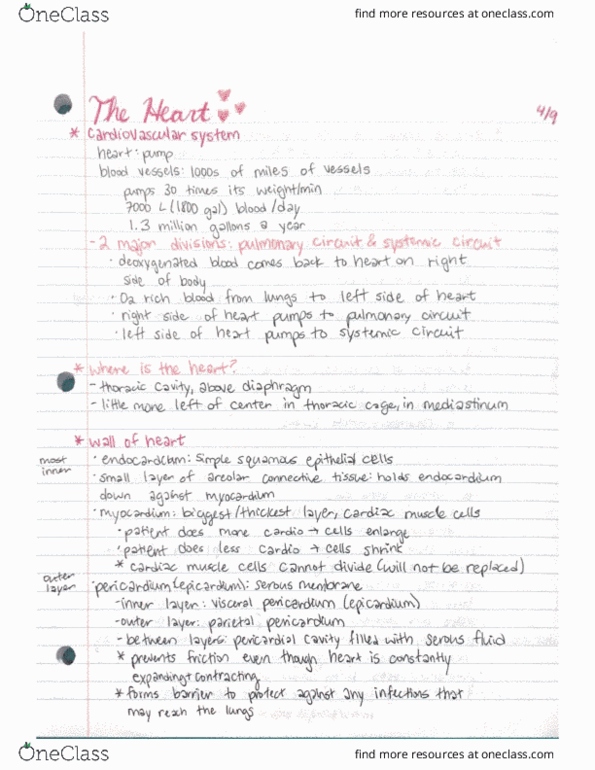 OneClass
find more resources at oneclass.com
The Heart
4/9
* cardiovascular system
heart: pump
blood vessels: 1000s of miles of vessels
pumps 30 times its weight/min
7000 L (1800 gal) blood/day
1.3 million gallons a year
- 2 major divisions: pulmonary circuit & systemic circuit
· deoxygenated blood comes back to heart on right
side of body
· O2 rich blood from lungs to left side of heart
· right side of heart pumps to pulmonary circuit
· left side of heart pumps to systemic circuit
* where is the heart?
- thoracic cavity, above diaphragm
- little more left of center in thoracic cage, in mediastinum
* wall of heart
most
inner
· endocardium: simple squamous epithelial cells
· small layer of areolar connective tissue: holds endocardium
down against myocardium
· myocardium: biggest/thickest layer, cardiac muscle cells
· patient does more cardio → cells enlarge
· patient does less cardio → cells shrink
* cardiac muscle cells cannot divide (will not be replaced)
outer
layer
· pericardium (epicardium): serous membrane
- inner layer: visceral pericardium (epicardium)
- outer layer: parietal pericardium
- between layers: pericardial cavity filled with serous fluid
* prevents friction even though heart is constantly
expanding + contracting
* forms barrier to protect against any infections that
may reach the lungs
OneClass
find more resources at oneclass.com